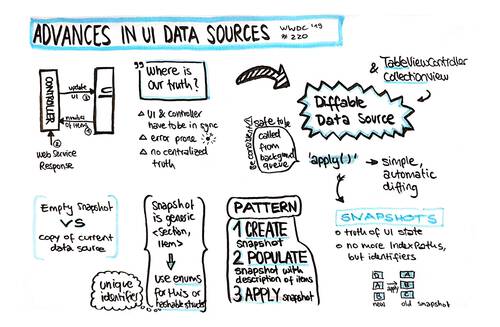 ADVANCES IN UI DATA SOURCES
WWDC '19
# 220
CONTROLLER
update
UI
UI
number
of items
Web Service
Response
"Where is
our truth?
UI & controller
have to be in sync
error prone
no centralized
truth
& TableViewController
CollectionView
Diffable
Data Source
be consistent!
safe to be
called
from
background
queue
'apply()'
simple,
automatic
diffing
Empty snapshot
VS
copy of current
data source
Snapshot
is generic
<Section,
Item>
use enums
for this or
hashable structs
unique
identifier
PATTERN
1 CREATE
snapshot
2 POPULATE
snapshot with
description of items
3 APPLY snapshot
SNAPSHOTS
truth of UI state
no more IndexPaths,
but identifiers
D A
A apply B
B C
new old snapshot